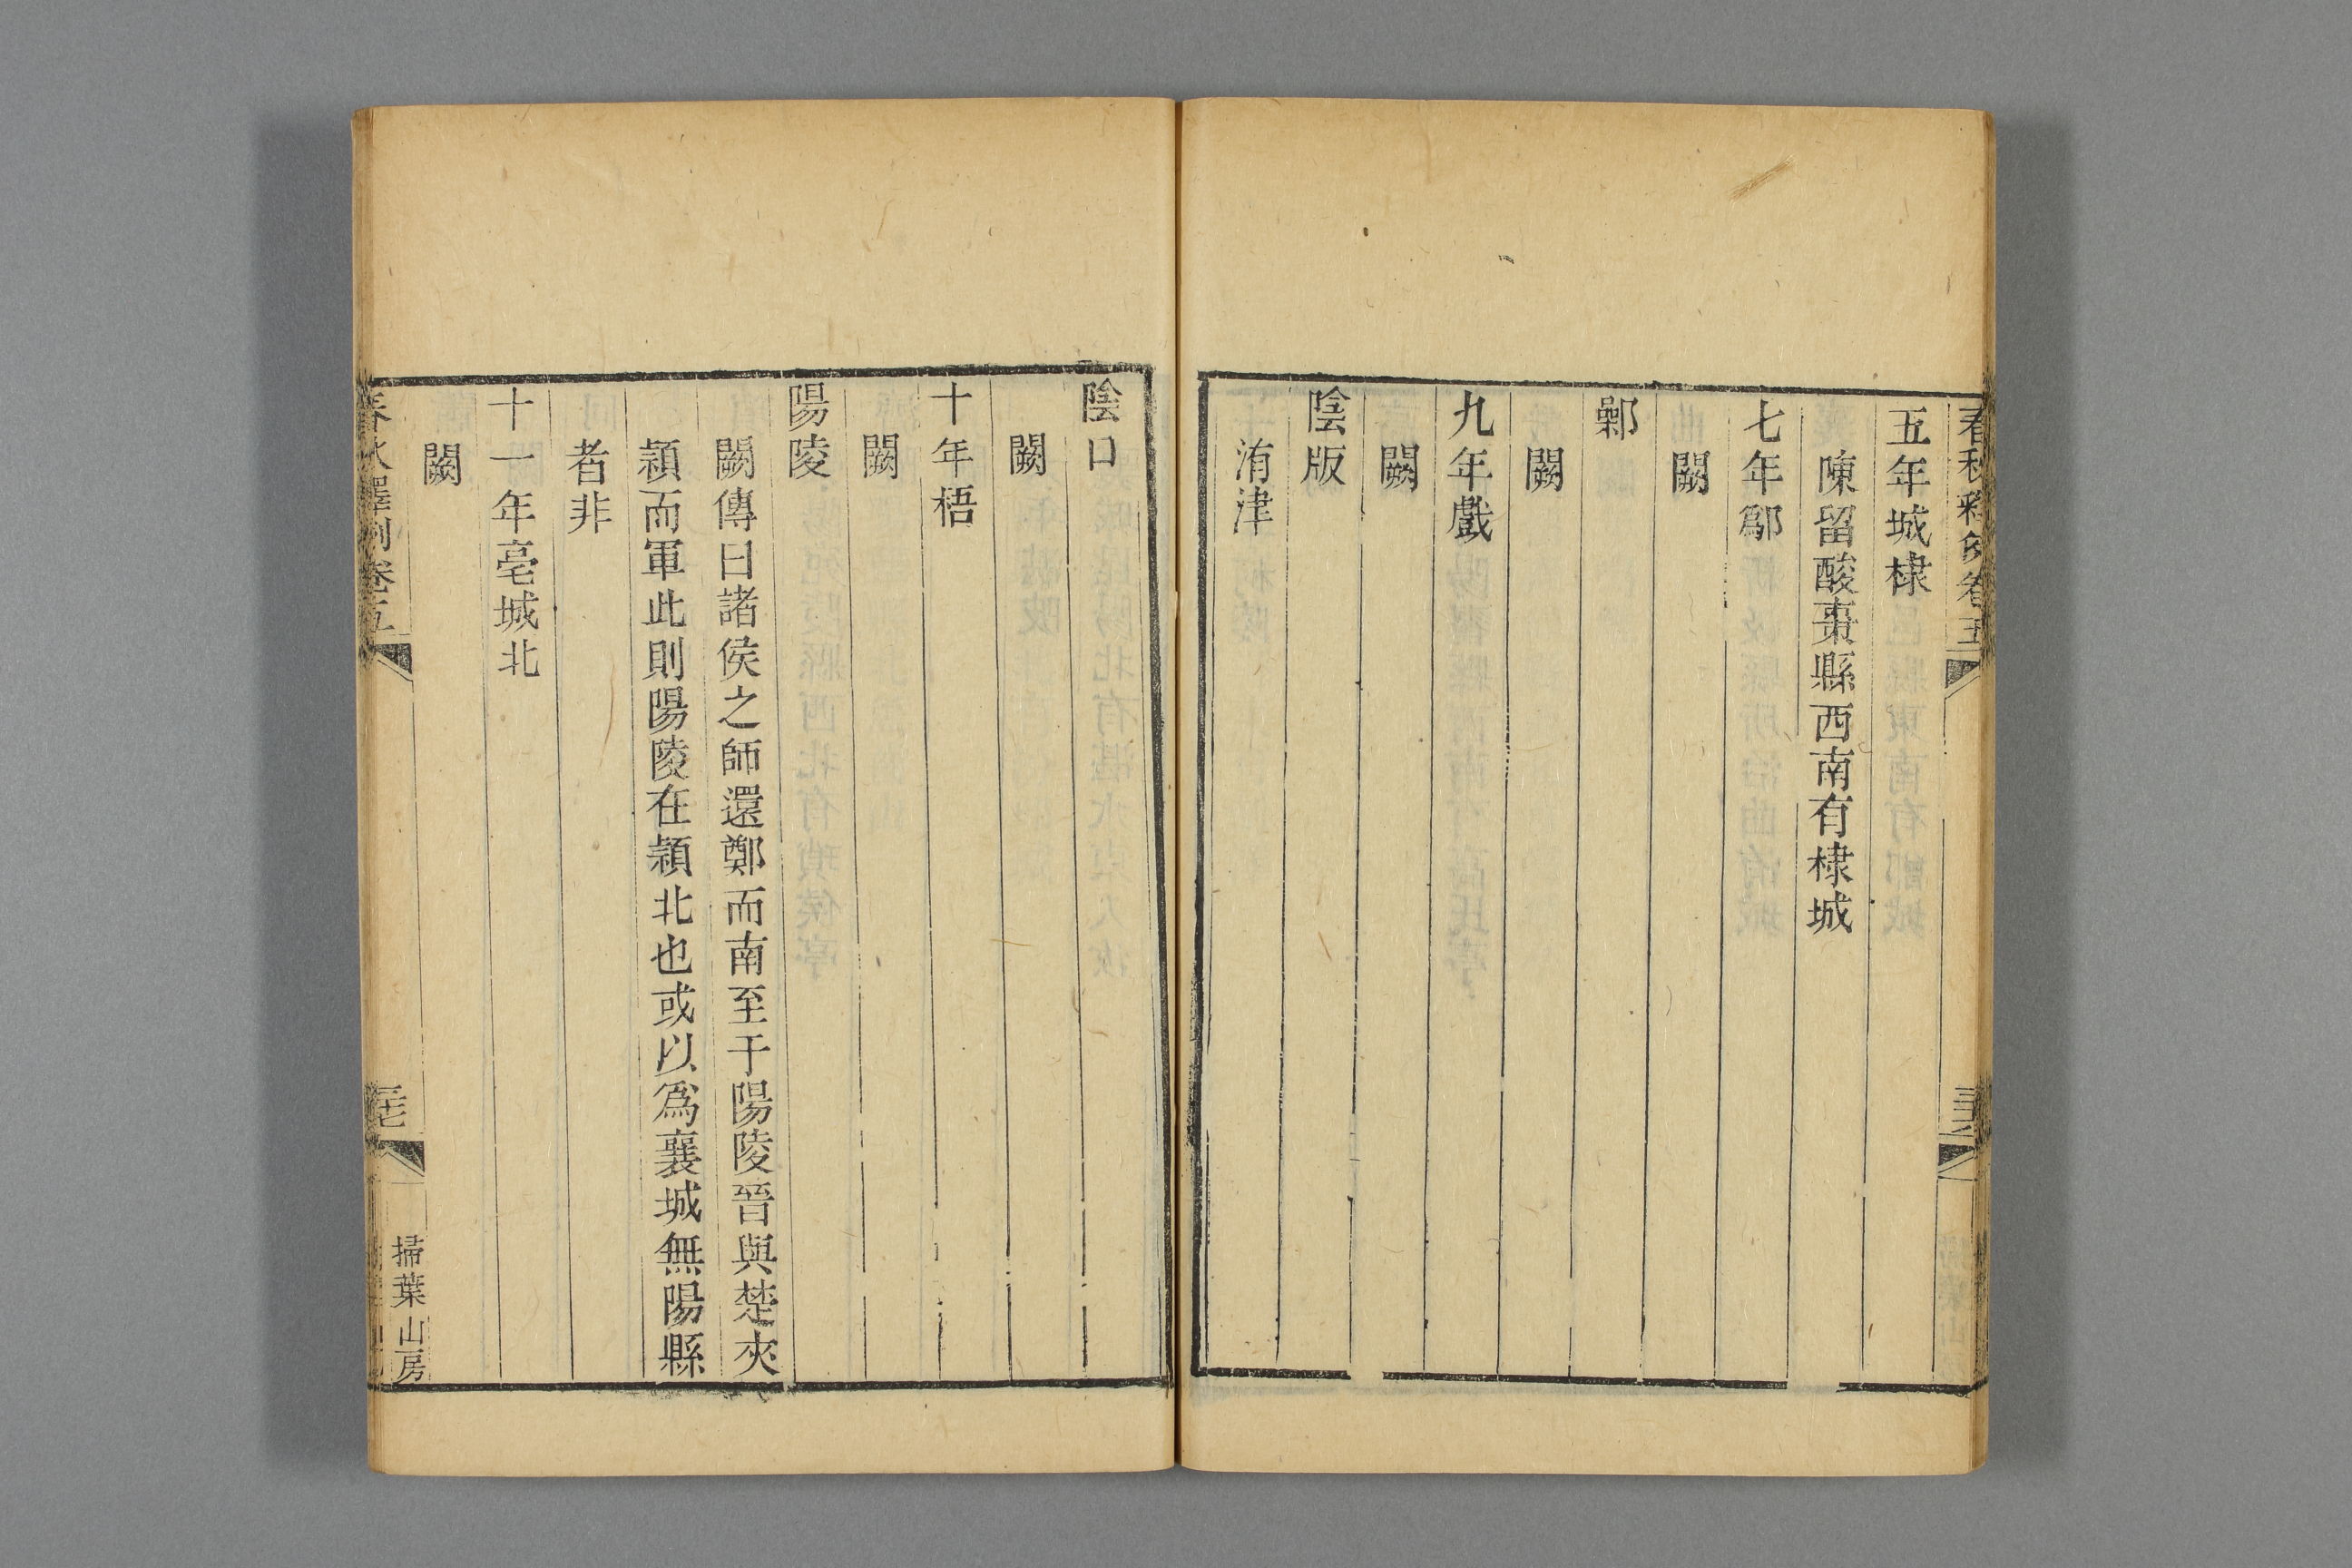 春秋釋例卷五
五年城棣
陳留酸棗縣西南有棣城
七年鄬
闕
鄵
闕
九年戲
闕
陰版
洧津
陰口
闕
十年梧
闕
陽陵
闕傳曰諸侯之師還鄭而南至于陽陵晉與楚夾
潁而軍此則陽陵在潁北也或以爲襄城無陽縣
者非
十一年亳城北
闕
春秋釋例卷五
掃葉山房